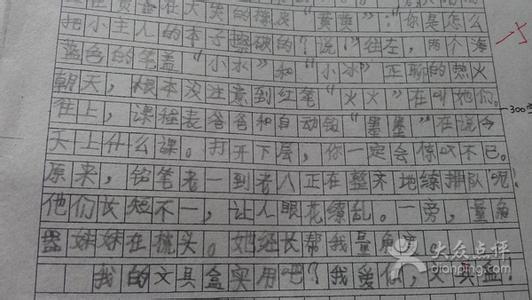 在责备在大哭的橡皮"黄黄":"你是怎么
把小主人的本子擦破的?说!"往左,两个海
蓝色的笔盖"小水"和"小冰"正聊的热火
朝天,根本没注意到红笔"火火"在叫她们。
往上,课程表爸爸和自动铅"墨墨"在说今
天上什么课。打开下层,你一定会惊叹不已。
原来,铅笔者一到者八正在整齐地练排队呢!
他们长短不一,让人眼花缭乱。一旁,量角
器妹妹在梳头。她还长帮我量角
我的文具盒实用吧?我爱你,文具盒
300字
大众点评
dianping.com